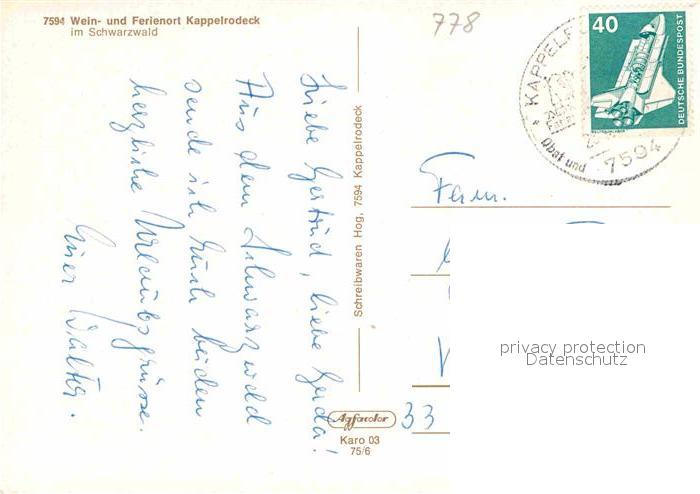 7594 Wein- und Ferienort Kappelrodeck
im Schwarzwald
778
Liebe Gertrud, liebe Gerda!
Aus dem Schwarzwald
sende ich Euch beiden
herzliche Urlaubsgrüsse.
Euer Walter.
Schreibwaren Hog, 7594 Kappelrodeck
Agfacolor
Karo 03
75/6
40
DEUTSCHE BUNDESPOST
Obst und
7594
Fam.
33
privacy protection
Datenschutz